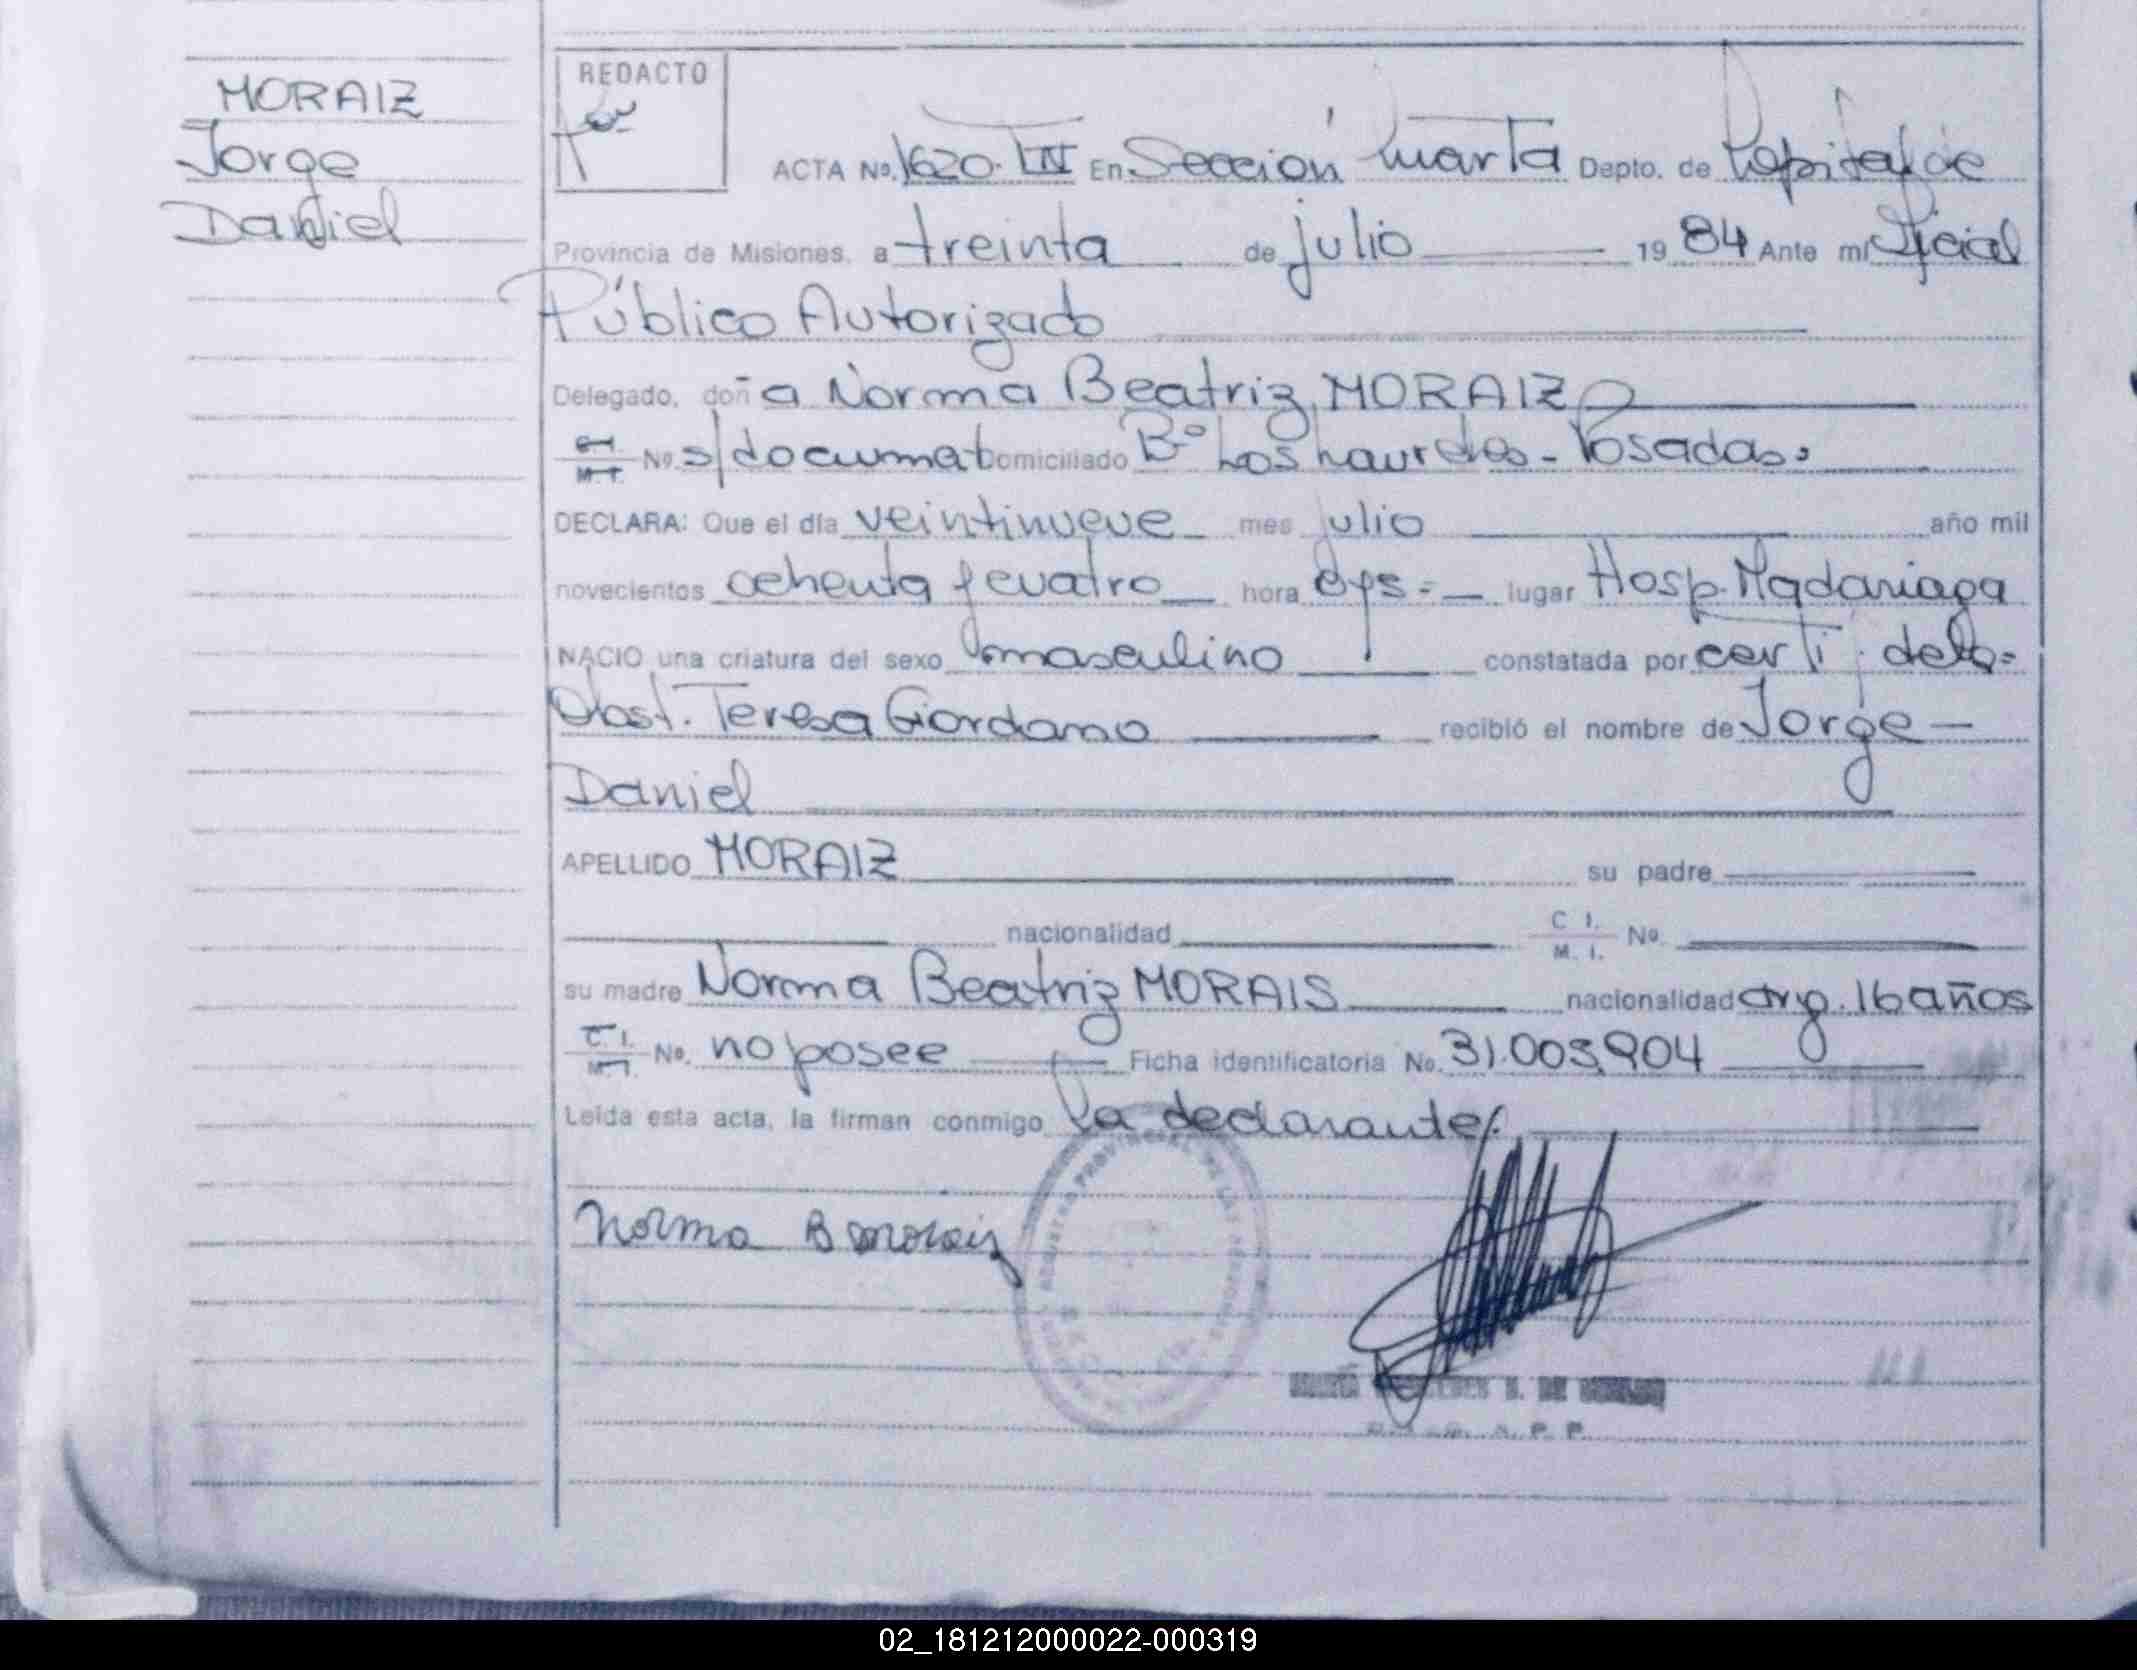 MORAIZ
Jorge
Daniel
REDACTO
ACTA No. 1620. En Sección Cuarta Depto. de Capital de
Provincia de Misiones, a treinta de julio 1984 Ante mí Oficial
Público Autorizado
Delegado, doña Norma Beatriz MORAIZ
C.I. M.I. No. s/documat domiciliado Bº Los Laureles - Posadas
DECLARA: Que el día veintinueve mes julio año mil
novecientos ochenta y cuatro hora lugar Hosp. Madariaga
NACIO una criatura del sexo masculino constatada por certi. de la
Obst. Teresa Giordano recibió el nombre de Jorge
Daniel
APELLIDO MORAIZ su padre
nacionalidad C. I. M. I. No.
su madre Norma Beatriz MORAIS nacionalidad arg. 16 años
C. I. M. I. No. no posee Ficha identificatoria No. 31.003.904
Leída esta acta, la firman conmigo la declarante
Norma B Moraiz
02_181212000022-000319